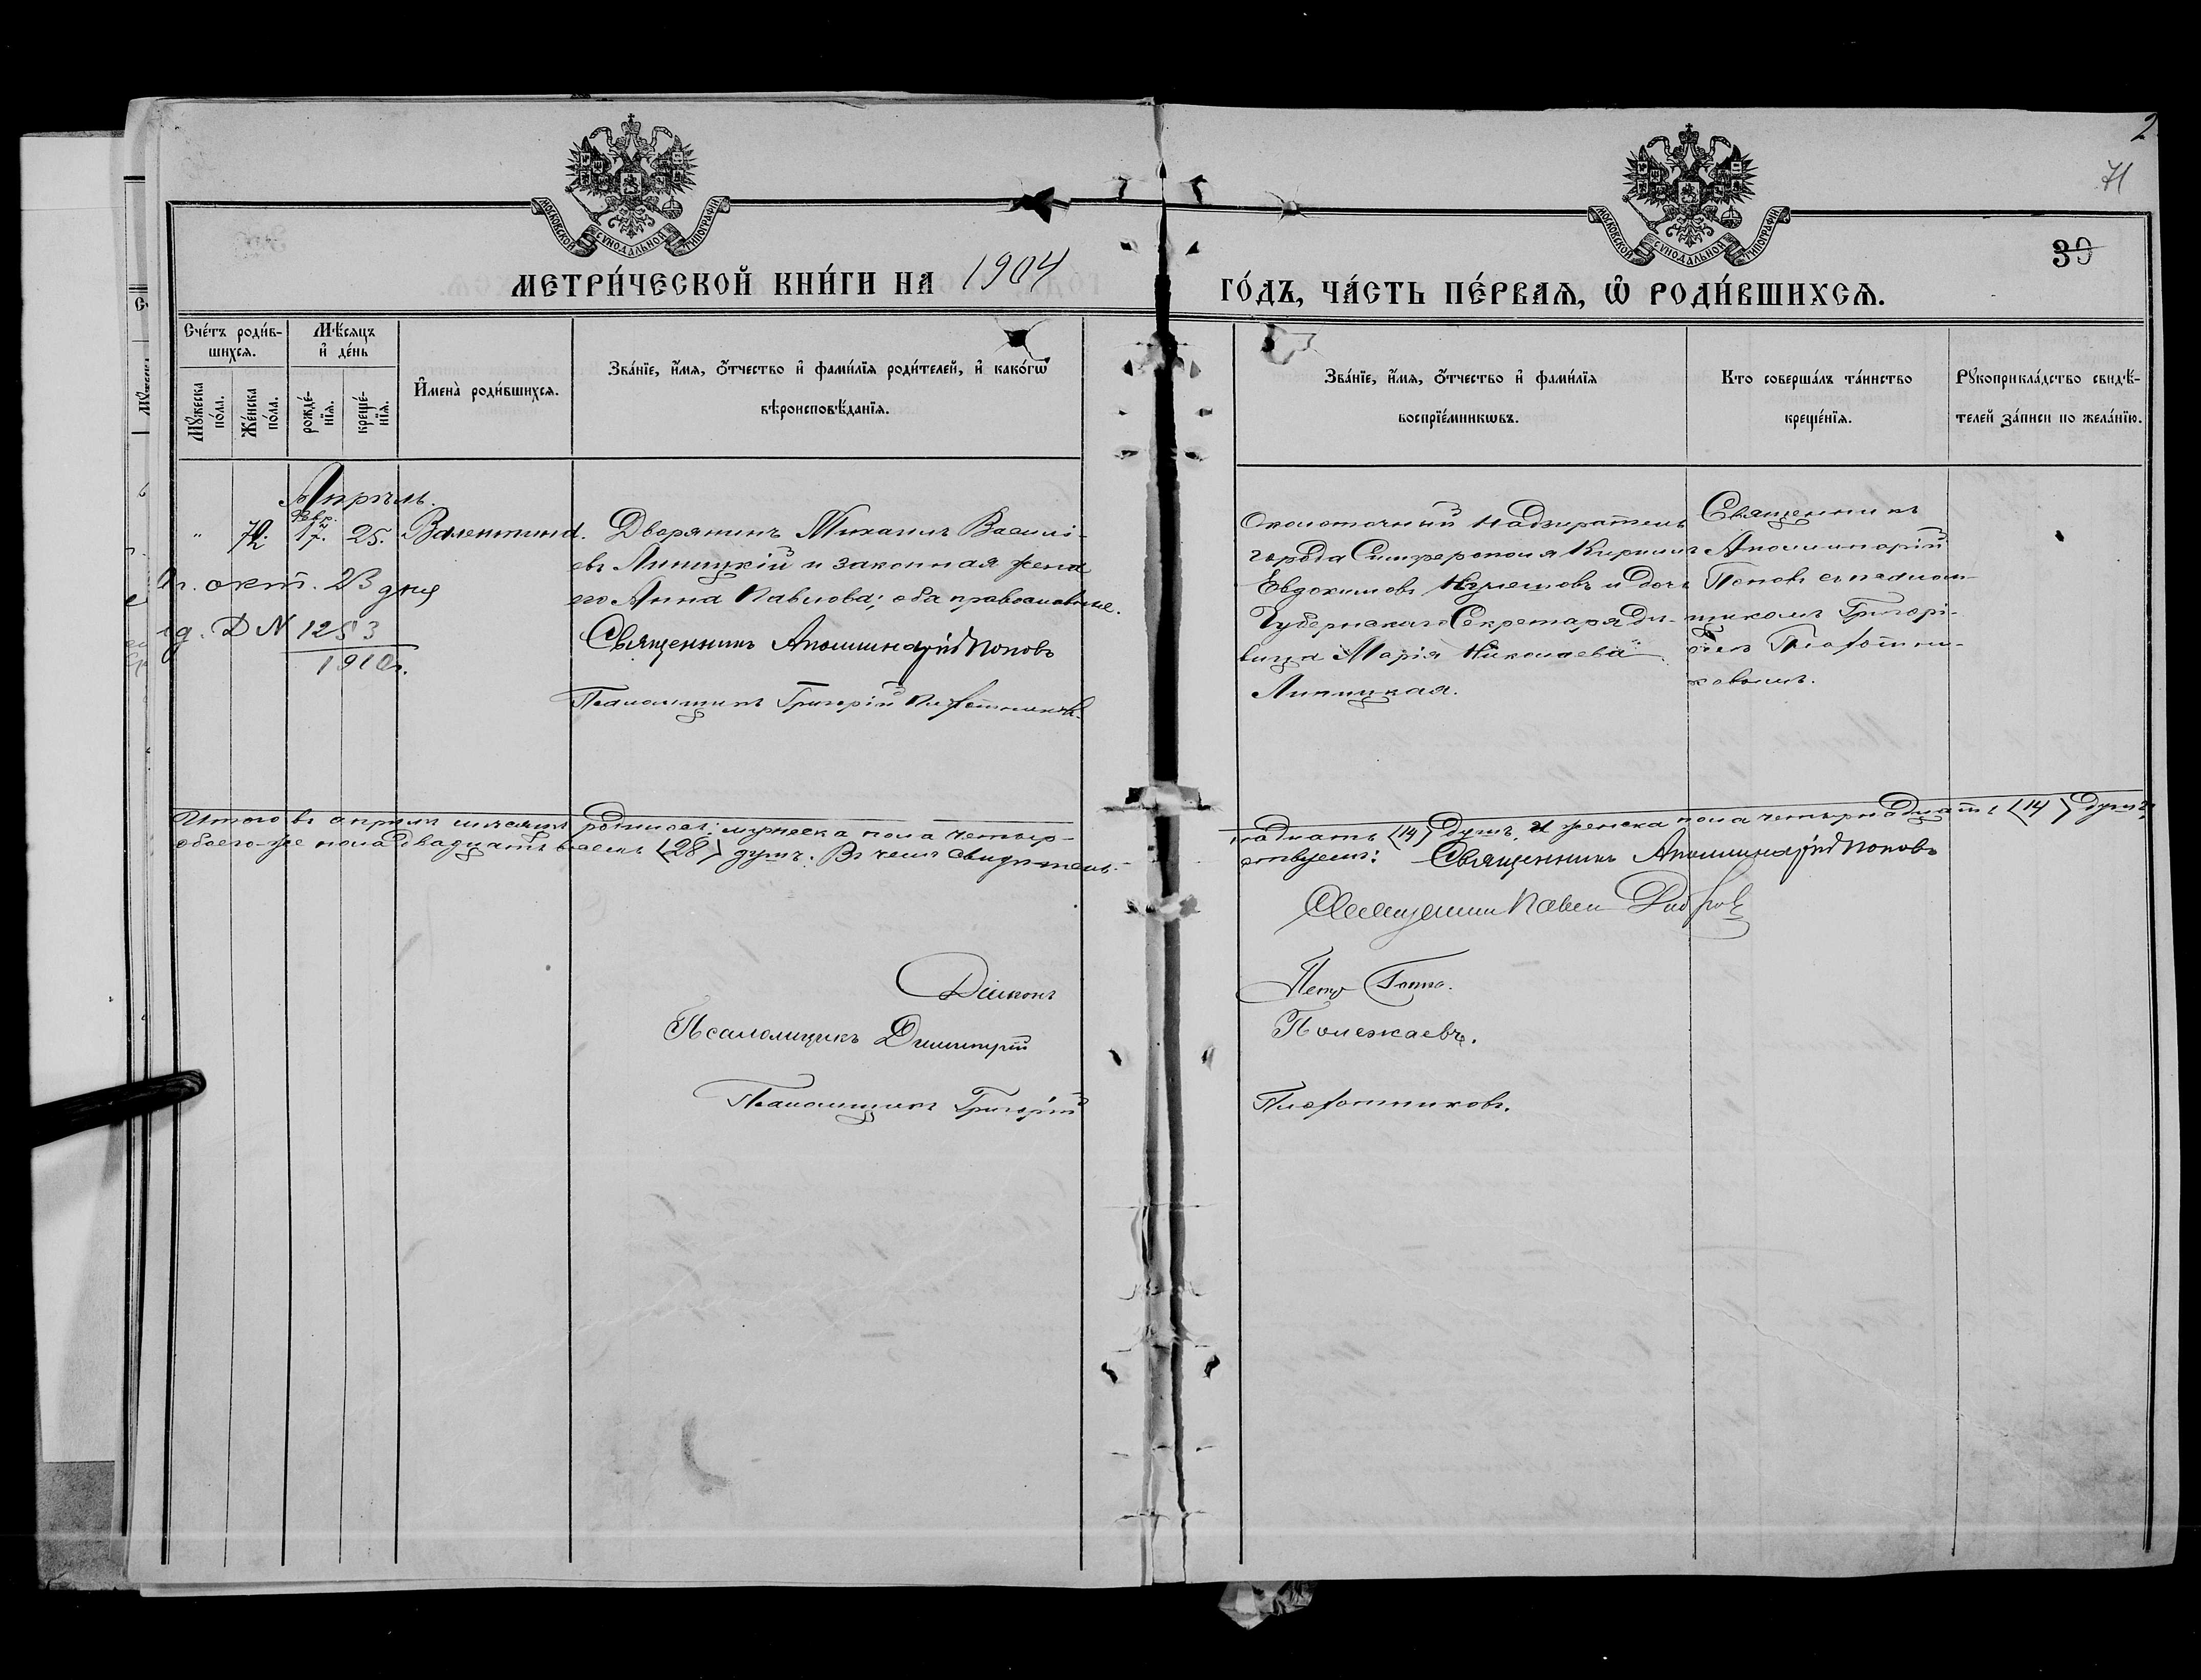 2
71
МОСКОВСКОЙ СѴНОДАЛЬНОЙ ТИПОГРАФІИ
МОСКОВСКОЙ СѴНОДАЛЬНОЙ ТИПОГРАФІИ
39
МЕТРИ́ЧЕСКОЙ КНИ́ГИ НА 1904
ГО́ДЪ, ЧА́СТЬ ПЕ́РВАѦ, Ѡ҆ РОДИ́ВШИХСѦ.
Сче́тъ роди́в-
шихсѧ.
Мꙋ́жеска по́ла.
Же́нска по́ла.
Мѣ́сѧцъ
и҆ де́нь
рожде́-
нїѧ.
креще́-
нїѧ.
И҆мена̀ роди́вшихсѧ.
Зва́нїе, и҆́мѧ, ѻ҆́тчество и҆ фами́лїѧ роди́телей, и҆ како́гѡ
вѣроисповѣ́данїѧ.
Зва́нїе, и҆́мѧ, ѻ҆́тчество и҆ фами́лїѧ
воспрїе́мникѡвъ.
Кто соверша́лъ та́инство
креще́нїѧ.
Рꙋкоприкла́дство свидѣ́-
телей за́писи по жела́нїю.
Апрѣль.
Февр.
17. 25. Валентина.
Дворянинъ Михаилъ Василі-
евъ Липицкій и законная жена
его Анна Павлова; оба православные.
Священникъ Аполлинарій Поповъ
Псаломщикъ Григорій Плотниковъ.
окт. 23 дня
№ 1253
1910г.
Околоточный надзиратель
города Симферополя Кириллъ
Евдокимовъ и дочь
Губернскаго Секретаря дѣ-
вица Марія Николаева
Липицкая.
Священникъ
Аполлинарій
Поповъ съ псалом-
щикомъ Григорі-
емъ Плотни-
ковымъ.
Итого въ апрѣлѣ мѣсяцѣ родилось: мужеска пола четыр-
надцать (14) душъ, и женска пола четырнадцать (14) душъ,
обоего-же пола двадцать восемь (28) душъ. Въ чемъ свидѣтель-
ствуемъ: Священникъ Аполлинарій Поповъ
Священникъ Павелъ
Діаконъ Петръ
Псаломщикъ Димитрій Полежаевъ.
Псаломщикъ Григорій Плотниковъ.